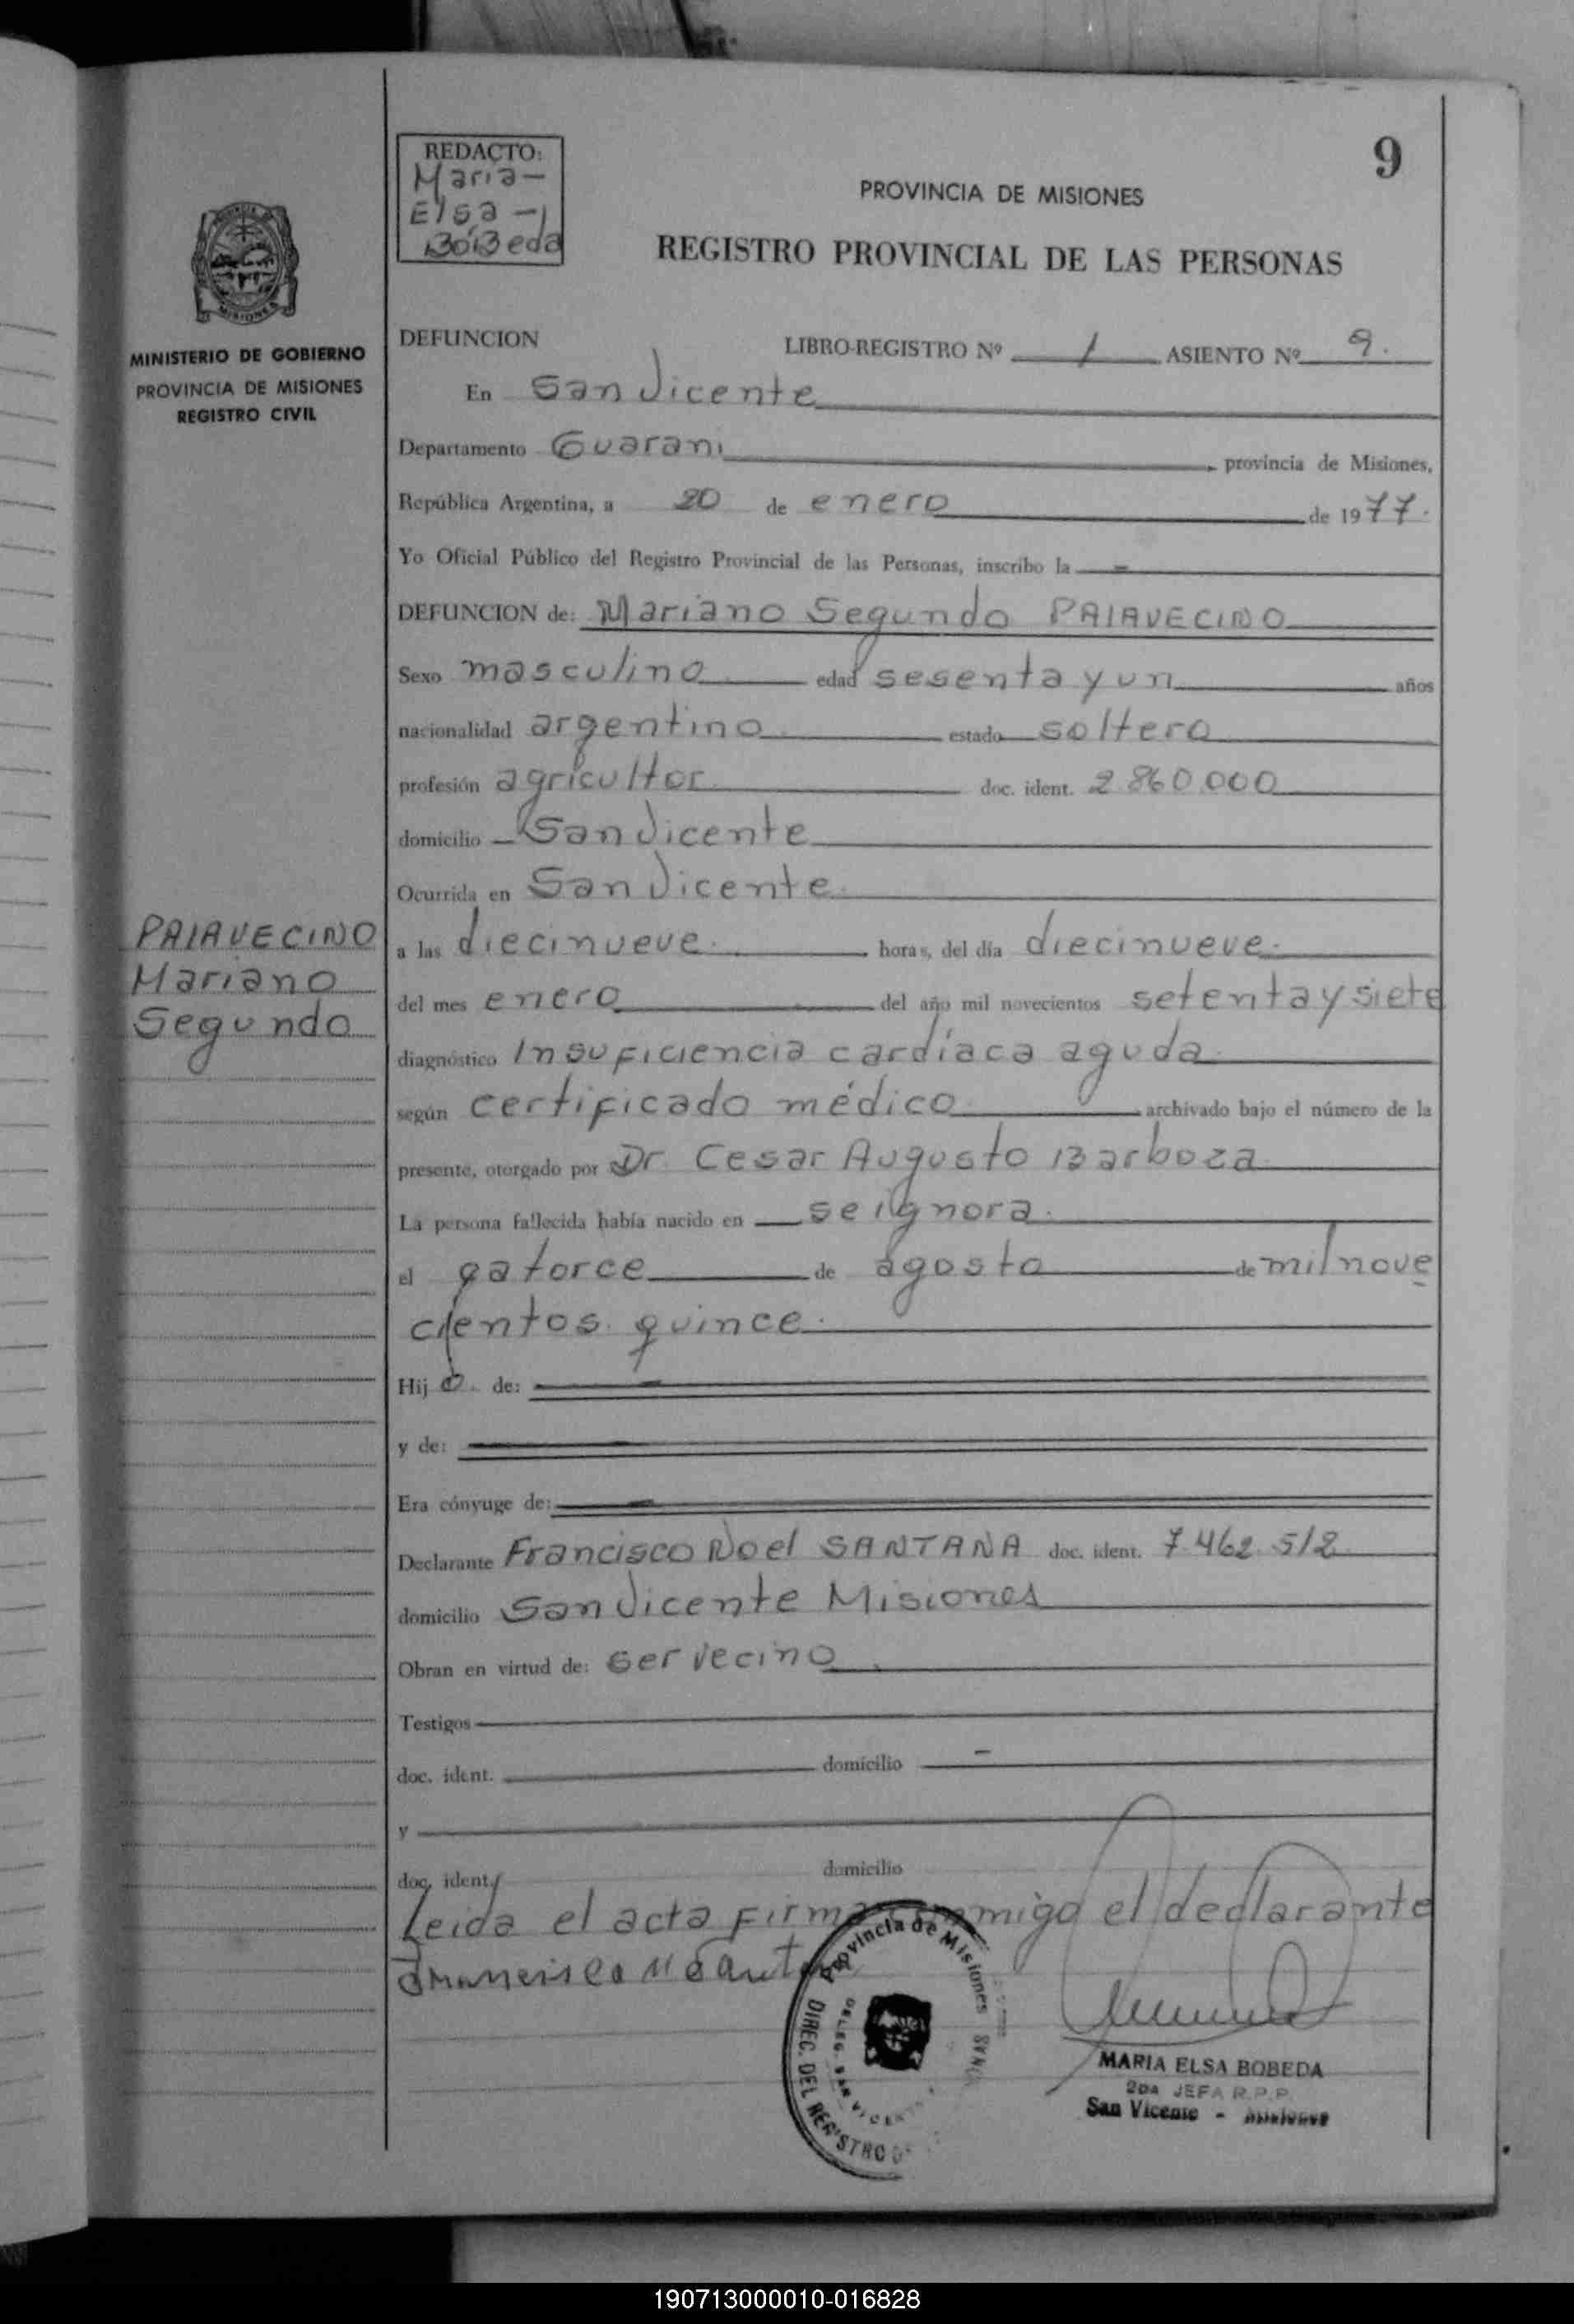 9
REDACTO:
Maria-
Elsa-
BoBeda
PROVINCIA DE MISIONES
REGISTRO PROVINCIAL DE LAS PERSONAS
MINISTERIO DE GOBIERNO
PROVINCIA DE MISIONES
REGISTRO CIVIL
DEFUNCION LIBRO-REGISTRO Nº 1 ASIENTO Nº 9.
En San Vicente
Departamento Guarani provincia de Misiones,
República Argentina, a 20 de enero de 1977.
Yo Oficial Público del Registro Provincial de las Personas, inscribo la
DEFUNCION de: Mariano Segundo PAIAVECINO
Sexo masculino edad sesenta y un años
nacionalidad argentino estado soltero
profesión agricultor doc. ident. 2 860 000
domicilio San Vicente
Ocurrida en San Vicente
PAIAVECINO
Mariano
Segundo
a las diecinueve horas, del día diecinueve.
del mes enero del año mil novecientos setenta y siete
diagnóstico Insuficiencia cardíaca aguda
según certificado médico archivado bajo el número de la
presente, otorgado por Dr. Cesar Augusto Barboza
La persona fallecida había nacido en se ignora.
el catorce de agosto de mil nove
cientos quince.
Hij o. de:
y de:
Era cónyuge de:
Declarante Francisco Noel SANTANA doc. ident. 7.462.512
domicilio San Vicente Misiones
Obran en virtud de: ser vecino
Testigos
doc. ident. domicilio
y
doc. ident. domicilio
Leida el acta firma conmigo el declarante
Provincia de Misiones
DIREC. DEL REGISTRO
DELEG. SAN VICENTE
MARIA ELSA BOBEDA
2DA JEFA R.P.P.
San Vicente - Misiones
190713000010-016828